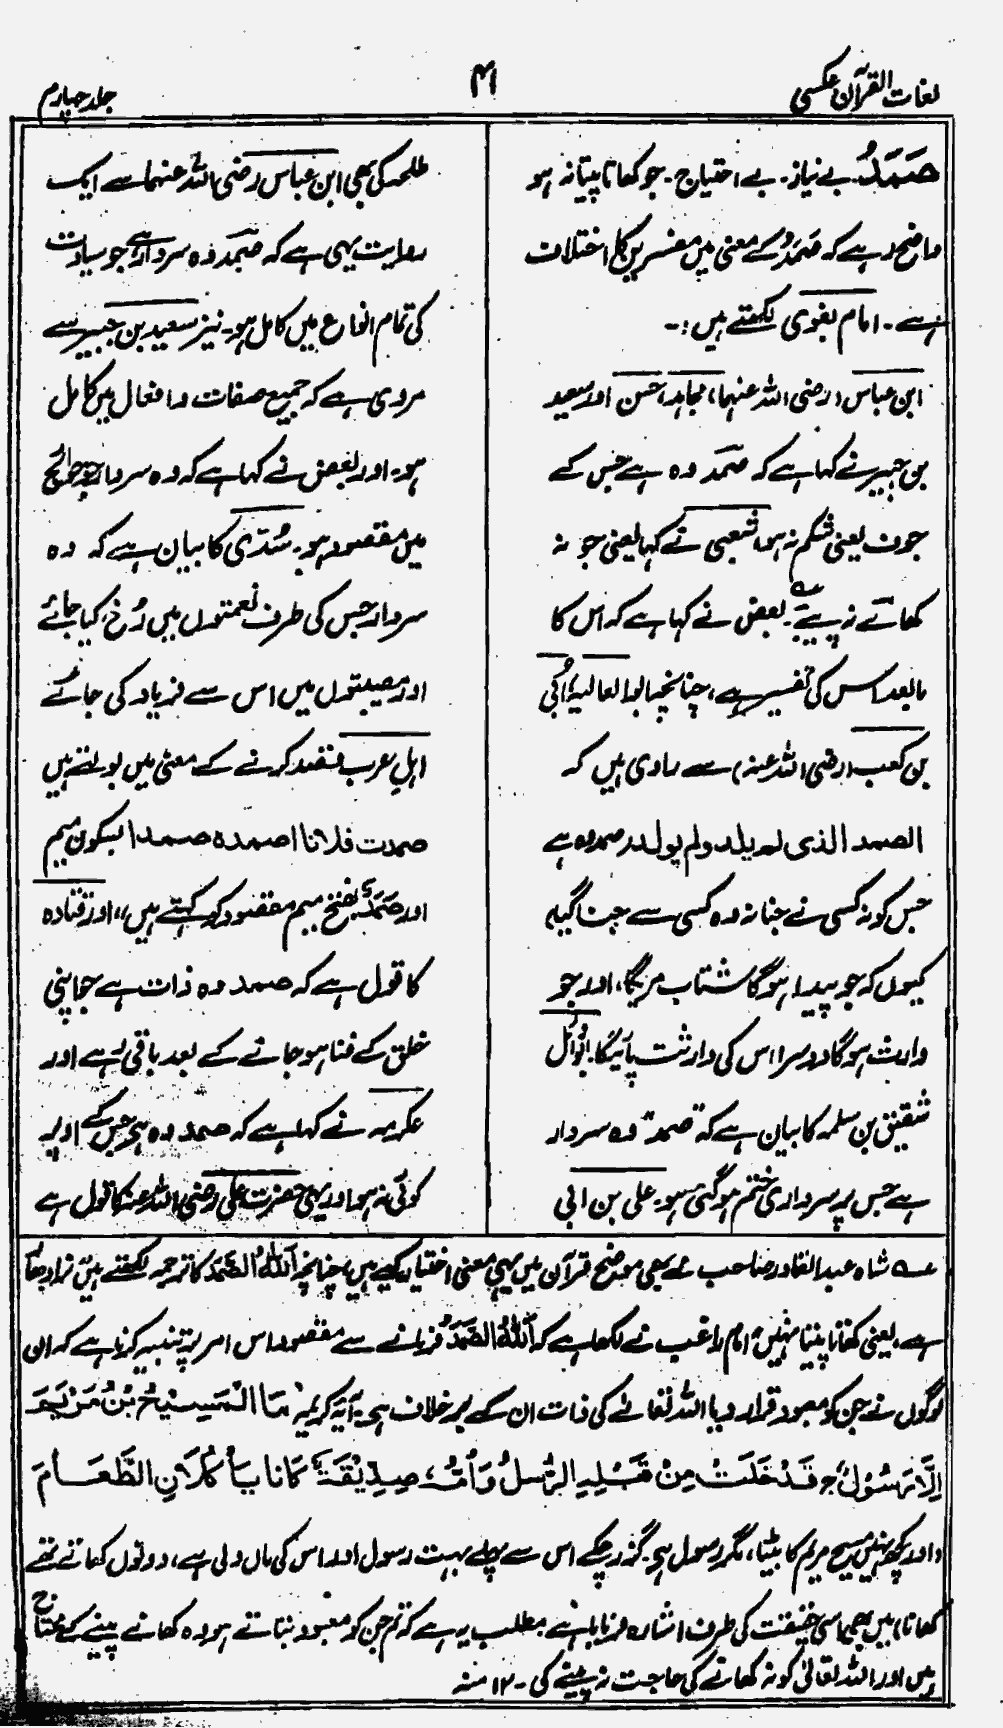 لغات القرآن عکسی
۴۱
جلد چہارم
صَمَدُ۔ بے نیاز۔ بے احتیاج۔ جو کھاتا پیتا نہ ہو
واضح رہے کہ صَمَدُ کے معنی میں مفسرین کا اختلاف
ہے۔ امام بغوی لکھتے ہیں:۔
ابن عباس (رضی اللہ عنہما) مجاہد، حسن اور سعید
بن جبیر نے کہا ہے کہ صمد وہ ہے جس کے
جوف یعنی شکم نہ ہو، شعبی نے کہا یعنی جو نہ
کھائے نہ پیے۔ بعض نے کہا ہے کہ اس کا
مابعد اس کی تفسیر ہے، چنانچہ ابوالعالیہ اُبی
بن کعب (رضی اللہ عنہ) سے راوی ہیں کہ
الصمد الذی لم یلد ولم یولد صمد وہ ہے
جس کو نہ کسی نے جنا نہ وہ کسی سے جنا گیا،
کیوں کہ جو پیدا ہوگا شتاب مریگا، اور جو
وارث ہوگا دوسرا اس کی وارثت پائیگا، ابووائل
شقیق بن سلمہ کا بیان ہے کہ صمد وہ سردار
ہے جس پر سرداری ختم ہوگئی ہو۔ علی بن ابی
طلحہ کی بھی ابن عباس رضی اللہ عنہما سے ایک
روایت یہی ہے کہ صمد وہ سردار ہے جو سیادت
کی تمام انواع میں کامل ہو۔ نیز سعید بن جبیر سے
مروی ہے کہ جمیع صفات و افعال میں کامل
ہو۔ اور بعض نے کہا ہے کہ وہ سردار جو حوائج
میں مقصود ہو۔ سُدّی کا بیان ہے کہ وہ
سردار جس کی طرف نعمتوں میں رُخ کیا جائے
اور مصیبتوں میں اس سے فریاد کی جائے
اہلِ عرب قصد کرنے کے معنی میں بولتے ہیں
صمدت فلانا اصمدہ صمدا بسکون میم
اور صَمَد بفتح میم مقصود کو کہتے ہیں،، اور قتادہ
کا قول ہے کہ صمد وہ ذات ہے جو اپنی
خلق کے فنا ہو جانے کے بعد باقی رہے اور
عکرمہ نے کہا ہے کہ صمد وہ ہے جس کے اوپر
کوئی نہ ہو اور یہی حضرت علی رضی اللہ عنہ کا قول ہے
عـہ شاہ عبدالقادر صاحب نے بھی موضح قرآن میں یہی معنی اختیار کیے ہیں، چنانچہ اَللّٰهُ الصَّمَدُ کا ترجمہ لکھتے ہیں نرادھار
ہے، یعنی کھانا پینا نہیں، امام راغب نے لکھا ہے کہ اَللّٰهُ الصَّمَدُ فرمانے سے مقصود اس امر پر تنبیہ کرنا ہے کہ ان
لوگوں نے جن کو معبود قرار دیا اللہ تعالےٰ کی ذات ان کے برخلاف ہے۔ آیۂ کریمہ مَا الْمَسِيْحُ بْنُ مَرْيَمَ
اِلَّا رَسُوْلٌ ج قَدْ خَلَتْ مِنْ قَبْلِهِ الرُّسُلُ وَاُمُّهٗ صِدِّيْقَةٌ كَانَا يَاْكُلَانِ الطَّعَامَ
(اور کچھ نہیں مسیح مریم کا بیٹا، مگر رسول ہے گزر چکے اس سے پہلے بہت رسول اور اس کی ماں ولی ہے، دونوں کھاتے تھے
کھانا) میں بھی اسی حقیقت کی طرف اشارہ فرمایا ہے مطلب یہ ہے کہ تم جن کو معبود بتاتے ہو وہ کھانے پینے کے محتاج
ہیں اور اللہ تعالیٰ کو نہ کھانے کی حاجت نہ پینے کی۔ ۱۲ منہ